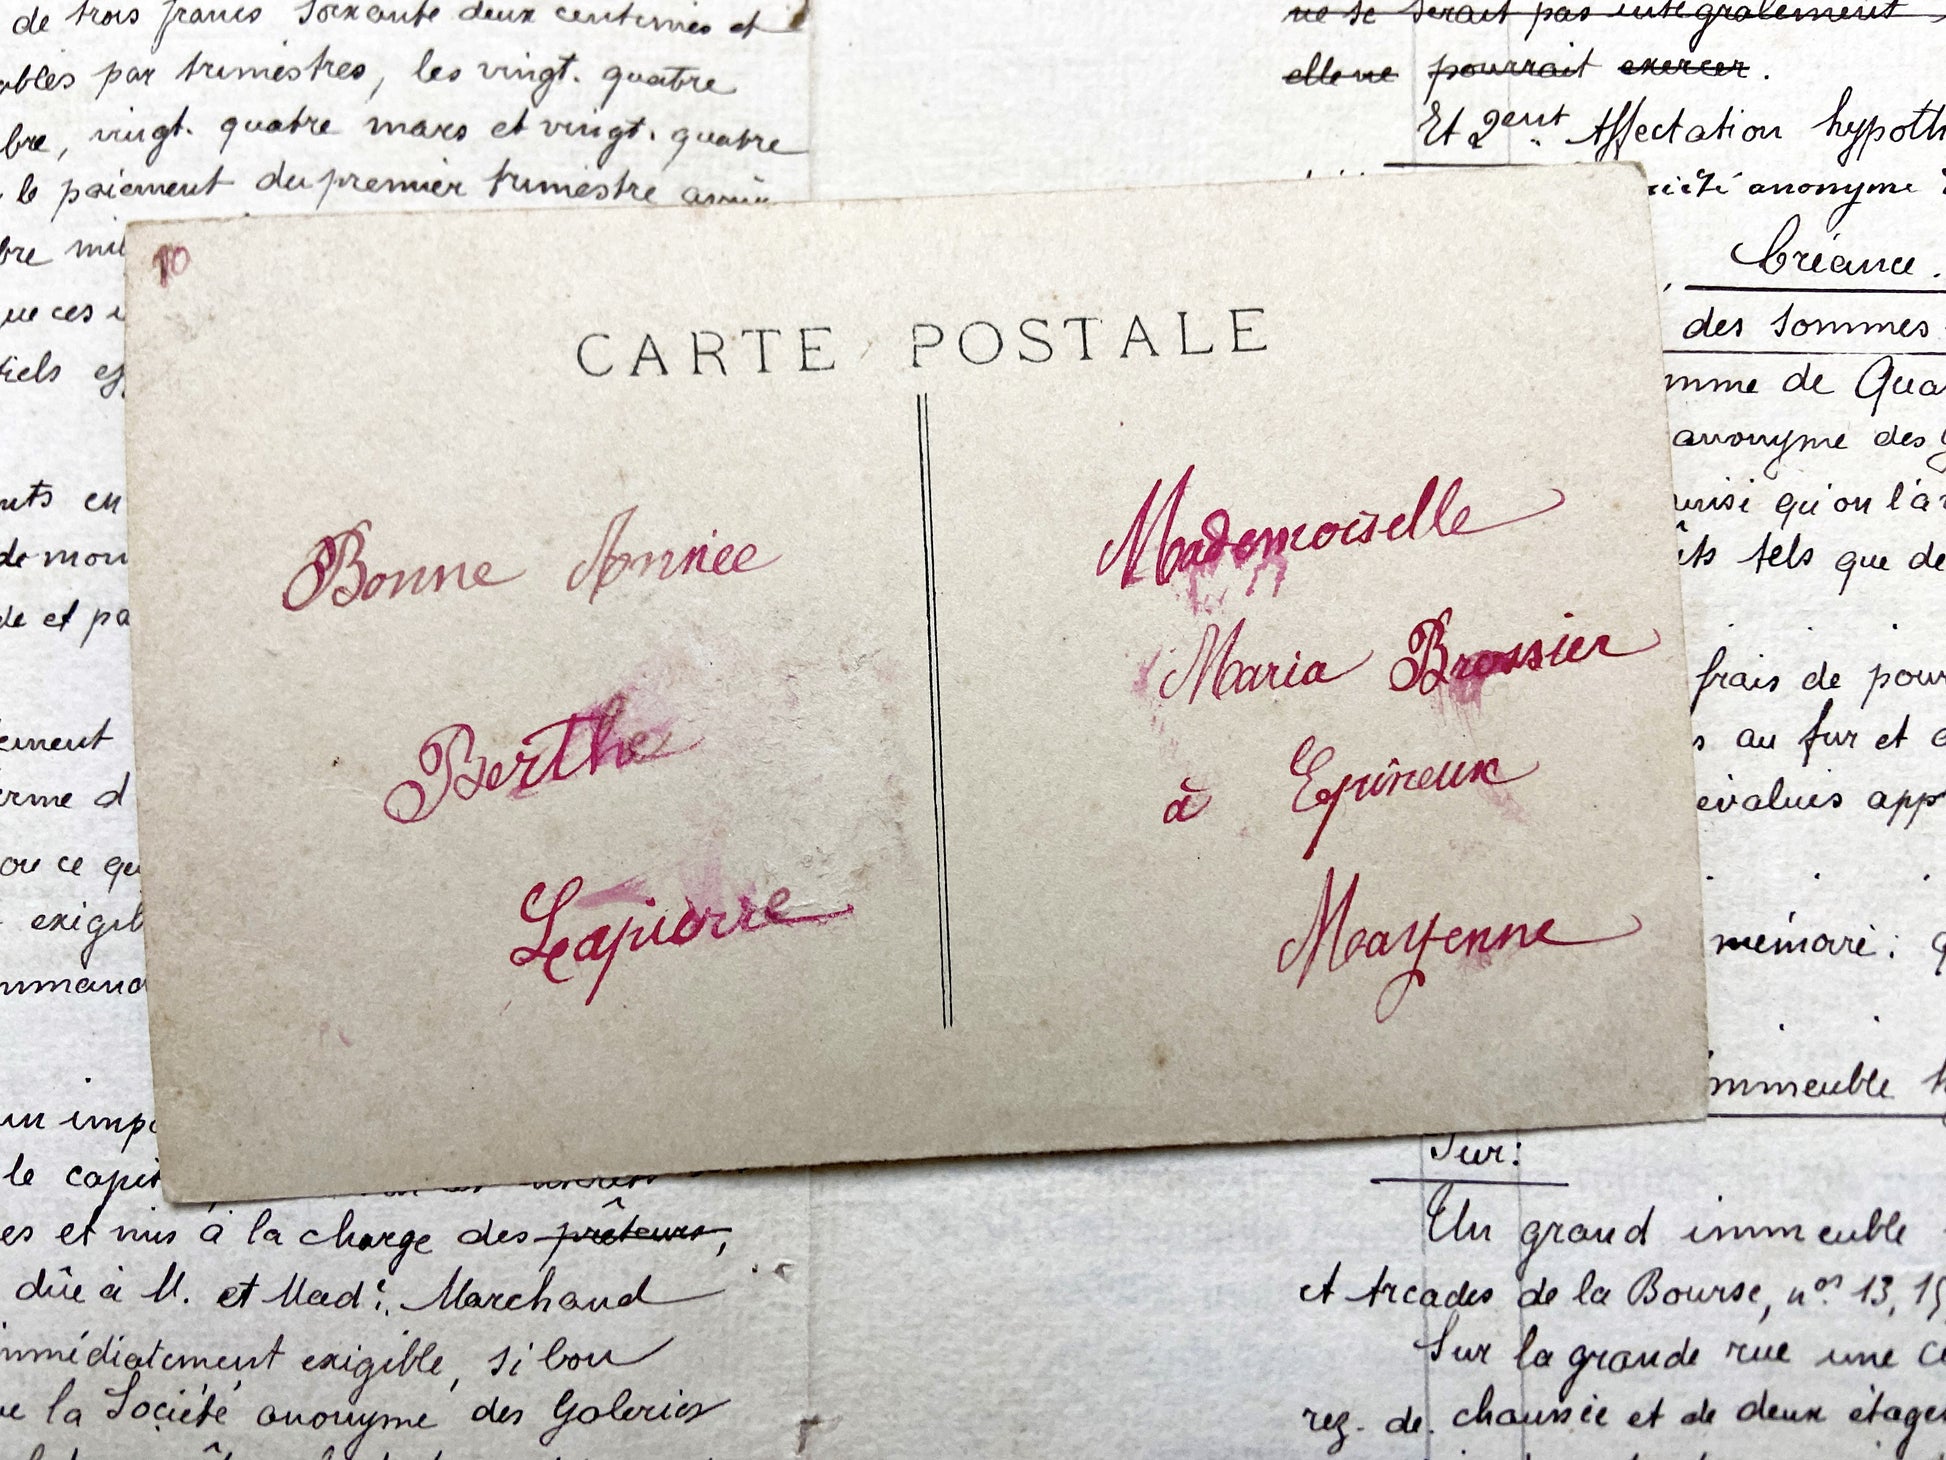 de trois francs soixante deux centimes et
ables par trimestres, les vingt. quatre
bre, vingt. quatre mars et vingt. quatre
le paiement du premier trimestre
bre mil
ue ces
tiels
nts en
de mon
de et pa
ement
erme d
ou ce qu
exigib
mmand
un imp
le capit
es et mis à la charge des prêteurs,
dûe à M. et Mad? Marchand
immédiatement exigible, si bon
la Société anonyme des Galeries
10
CARTE POSTALE
Bonne Année
Berthe
Lapierre
Mademoiselle
Maria Brossier
à Epineux
Mayenne
ne se serait pas intégralement
elle ne pourrait exercer.
Et 2ent Affectation hypoth
ciété anonyme
Créance.
des sommes
mme de Qua
anonyme des
ainsi qu'on l'a
tels que de
frais de pour
au fur et
évalués app
mémoire:
immeuble
Sur:
Un grand immeuble
et Arcades de la Bourse, nos 13, 15
Sur la grande rue une
rez. de. chaussée et de deux étages